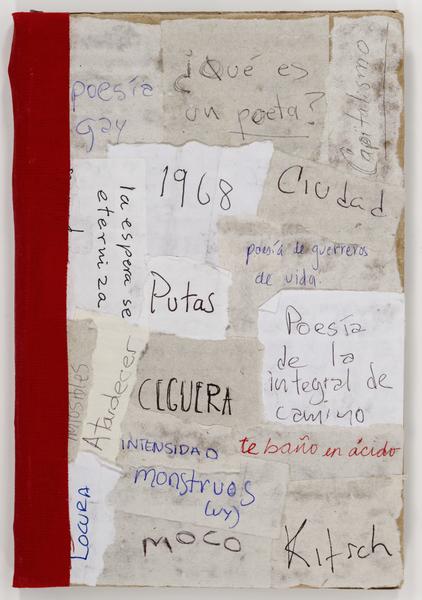 poesía
gay
¿Qué es
un poeta?
Capitalismo
1968
Ciudad
la espera se
eterniza
poesía de guerreros
de vida.
Putas
Poesía
de la
integral de
camino
Atardecer
CEGUERA
INTENSIDAD
te baño en ácido
monstruos
(uy)
LOCURA
MOCO
Kitsch